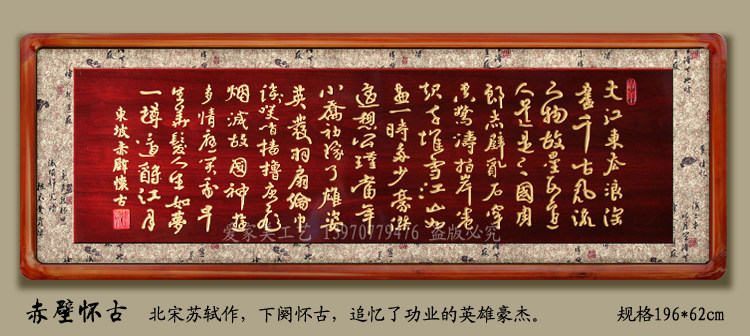 大江東去浪淘
盡千古風流
人物故壘西邊
人道是三國周
郎赤壁亂石穿
空驚濤拍岸卷
起千堆雪江山如
畫一時多少豪傑
遙想公瑾當年
小喬初嫁了雄姿
英發羽扇綸巾
談笑間檣櫓灰飛
煙滅故國神遊
多情應笑我早
生華髮人生如夢
一樽還酹江月
東坡赤壁懷古
爱家美工艺 15970779476 盗版必究
赤壁怀古 北宋苏轼作，下阕怀古，追忆了功业的英雄豪杰。 规格196*62cm